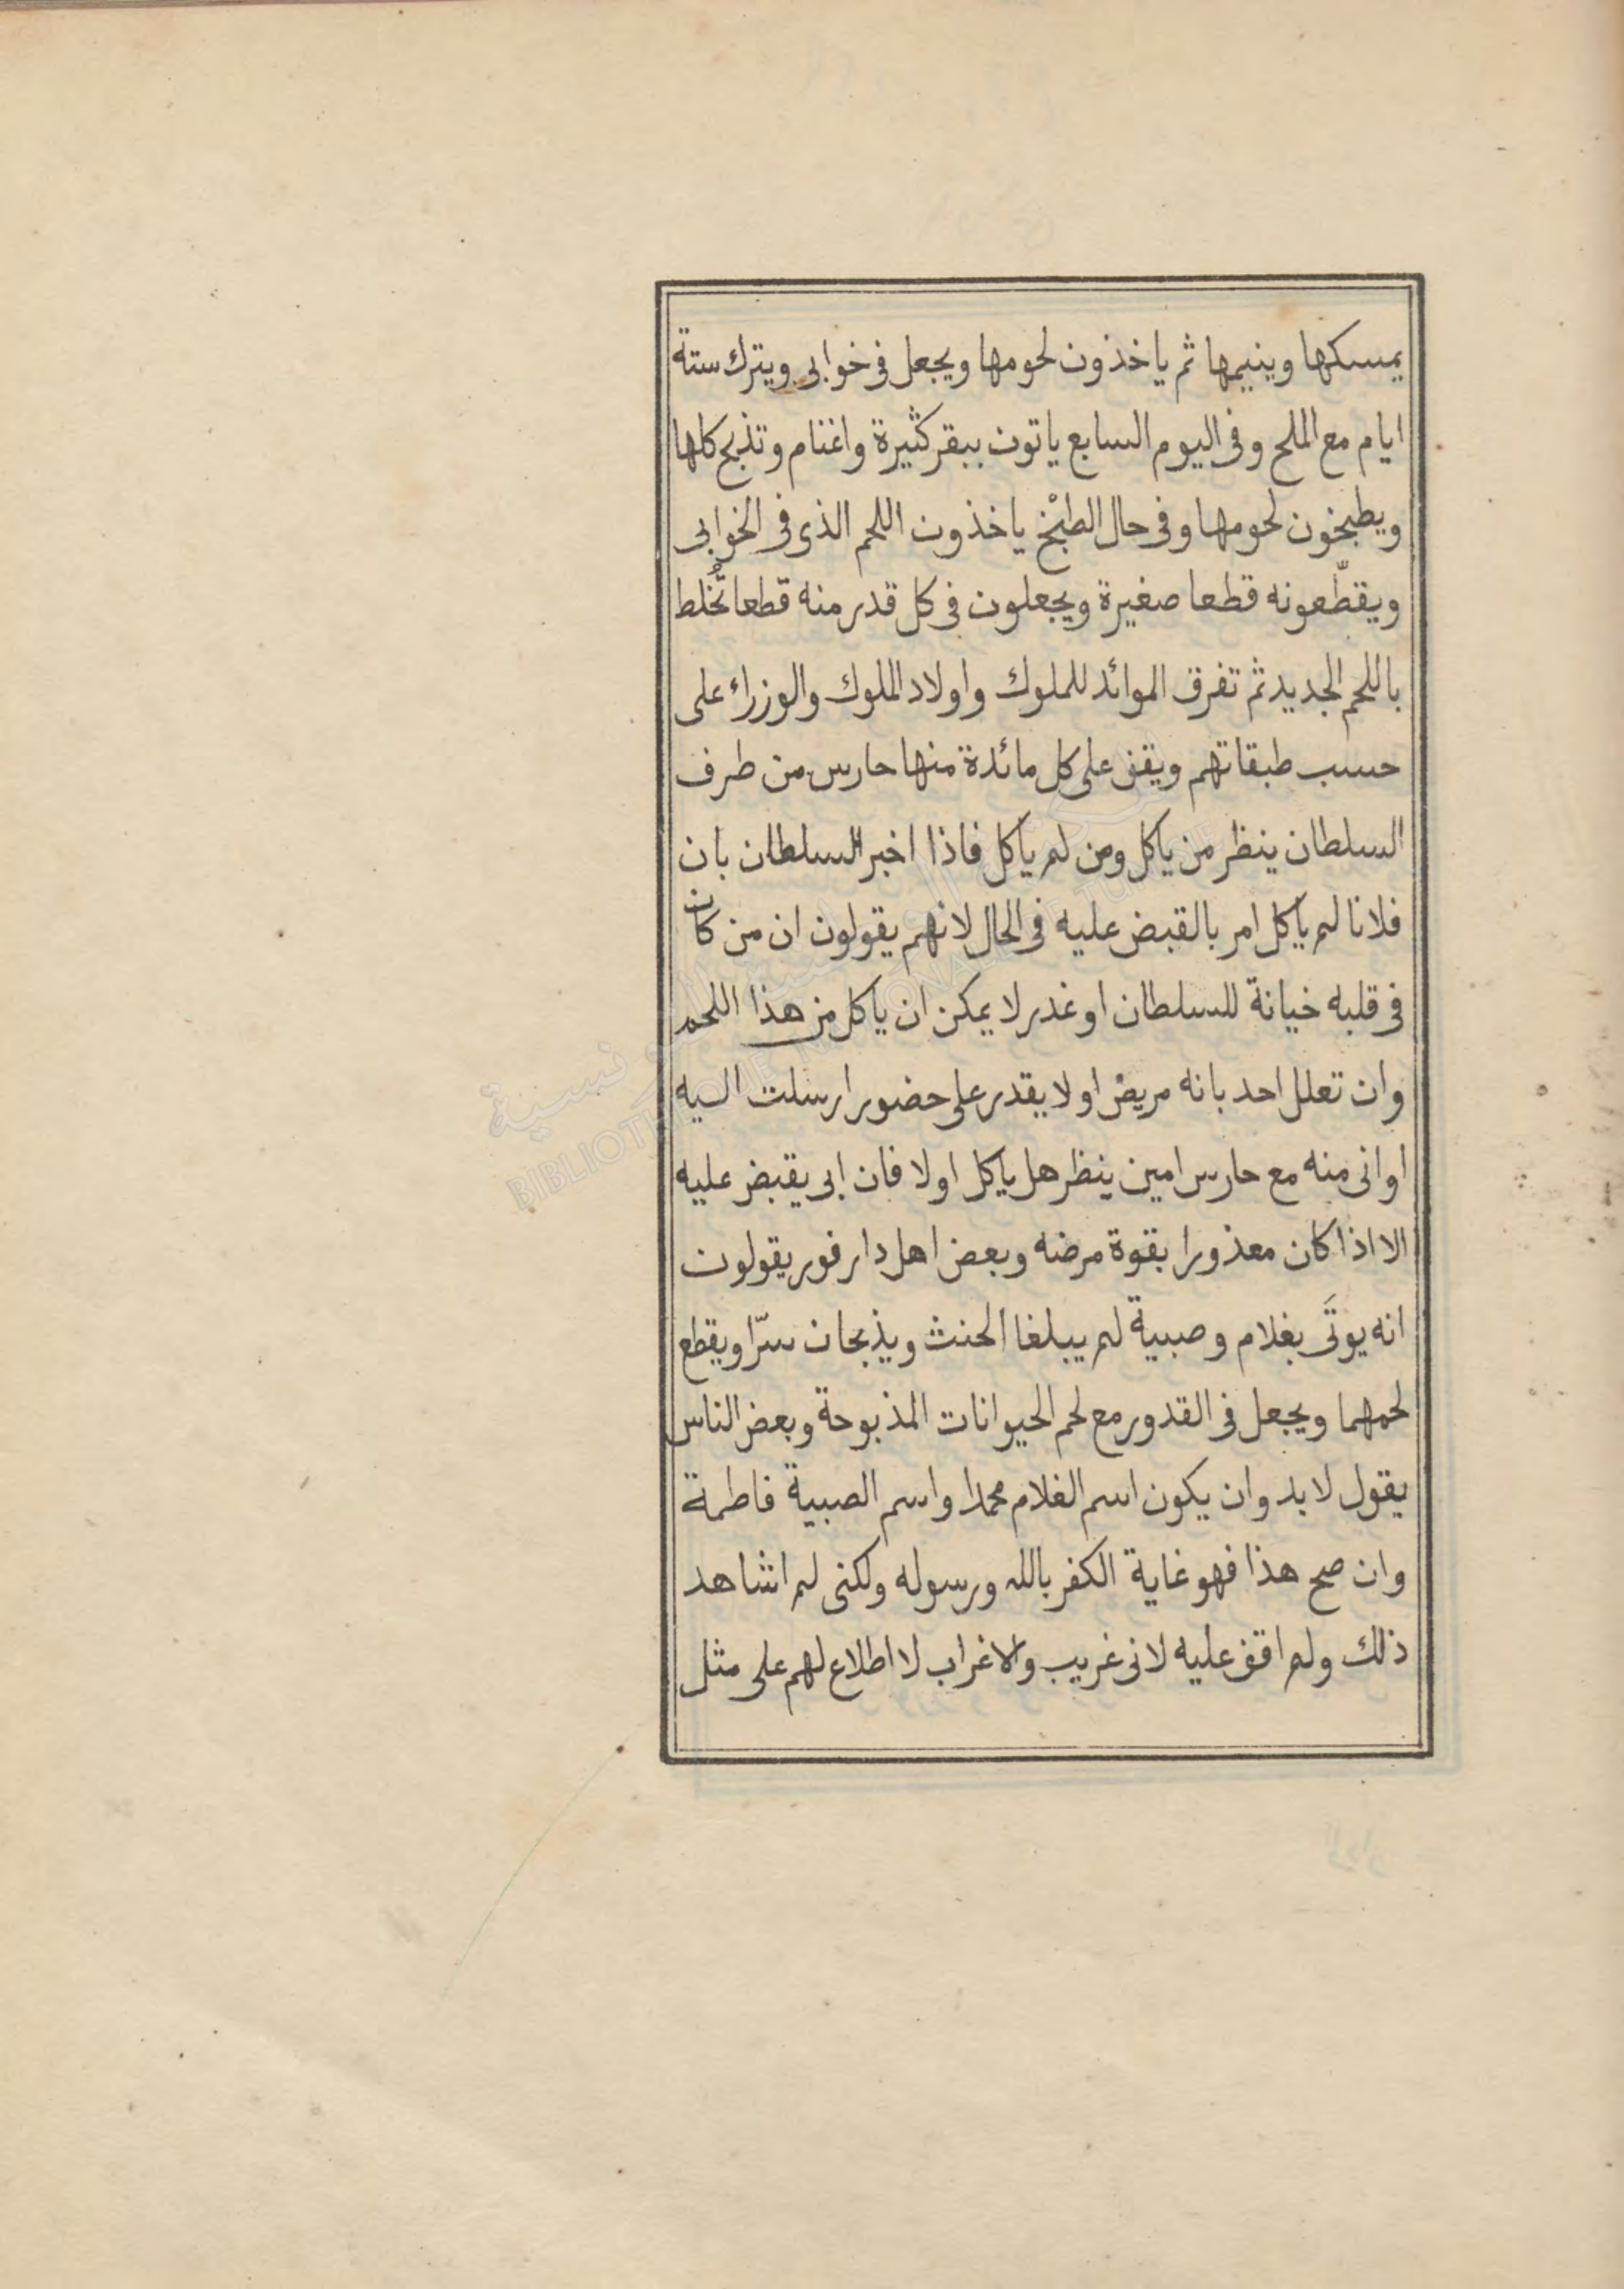 يمسكها وينيمها ثم ياخذون لحومها ويجعل فى خوابى ويترك ستة
ايام مع الملح وفى اليوم السابع ياتون ببقر كثيرة واغنام وتذبح كلها
ويطبخون لحومها وفى حال الطبْخ ياخذون اللحم الذى فى الخوابى
ويقطّعونه قطعا صغيرة ويجعلون فى كل قدر منه قطعا تُخلط
باللحم الجديد ثم تفرق الموائد للملوك واولاد الملوك والوزراء على
حسب طبقاتهم ويقف على كل مائدة منها حارس من طرف
السلطان ينظر من ياكل ومن لم ياكل فاذا اخبر السلطان بان
فلانا لم ياكل امر بالقبض عليه فى الحال لانهم يقولون ان من كان
فى قلبه خيانة للسلطان او غدر لا يمكن ان ياكل من هذا اللحم
وان تعلل احد بانه مريض او لا يقدر على حضور ارسلت اليه
اوانى منه مع حارس امين ينظر هل ياكل اولا فان ابى يقبض عليه
الا اذا كان معذورا بقوة مرضه وبعض اهل دارفور يقولون
انه يوتَى بغلام وصبية لم يبلغا الحنث ويذبحان سرّا ويقطع
لحمهما ويجعل فى القدور مع لحم الحيوانات المذبوحة وبعض الناس
يقول لا بد وان يكون اسم الغلام محمدا واسم الصبية فاطمة
وان صح هذا فهو غاية الكفر بالله ورسوله ولكنى لم اشاهد
ذلك ولم اقف عليه لانى غريب والاغراب لا اطلاع لهم على مثل
BIBLIOTHEQUE NATIONALE DE TUNISIE